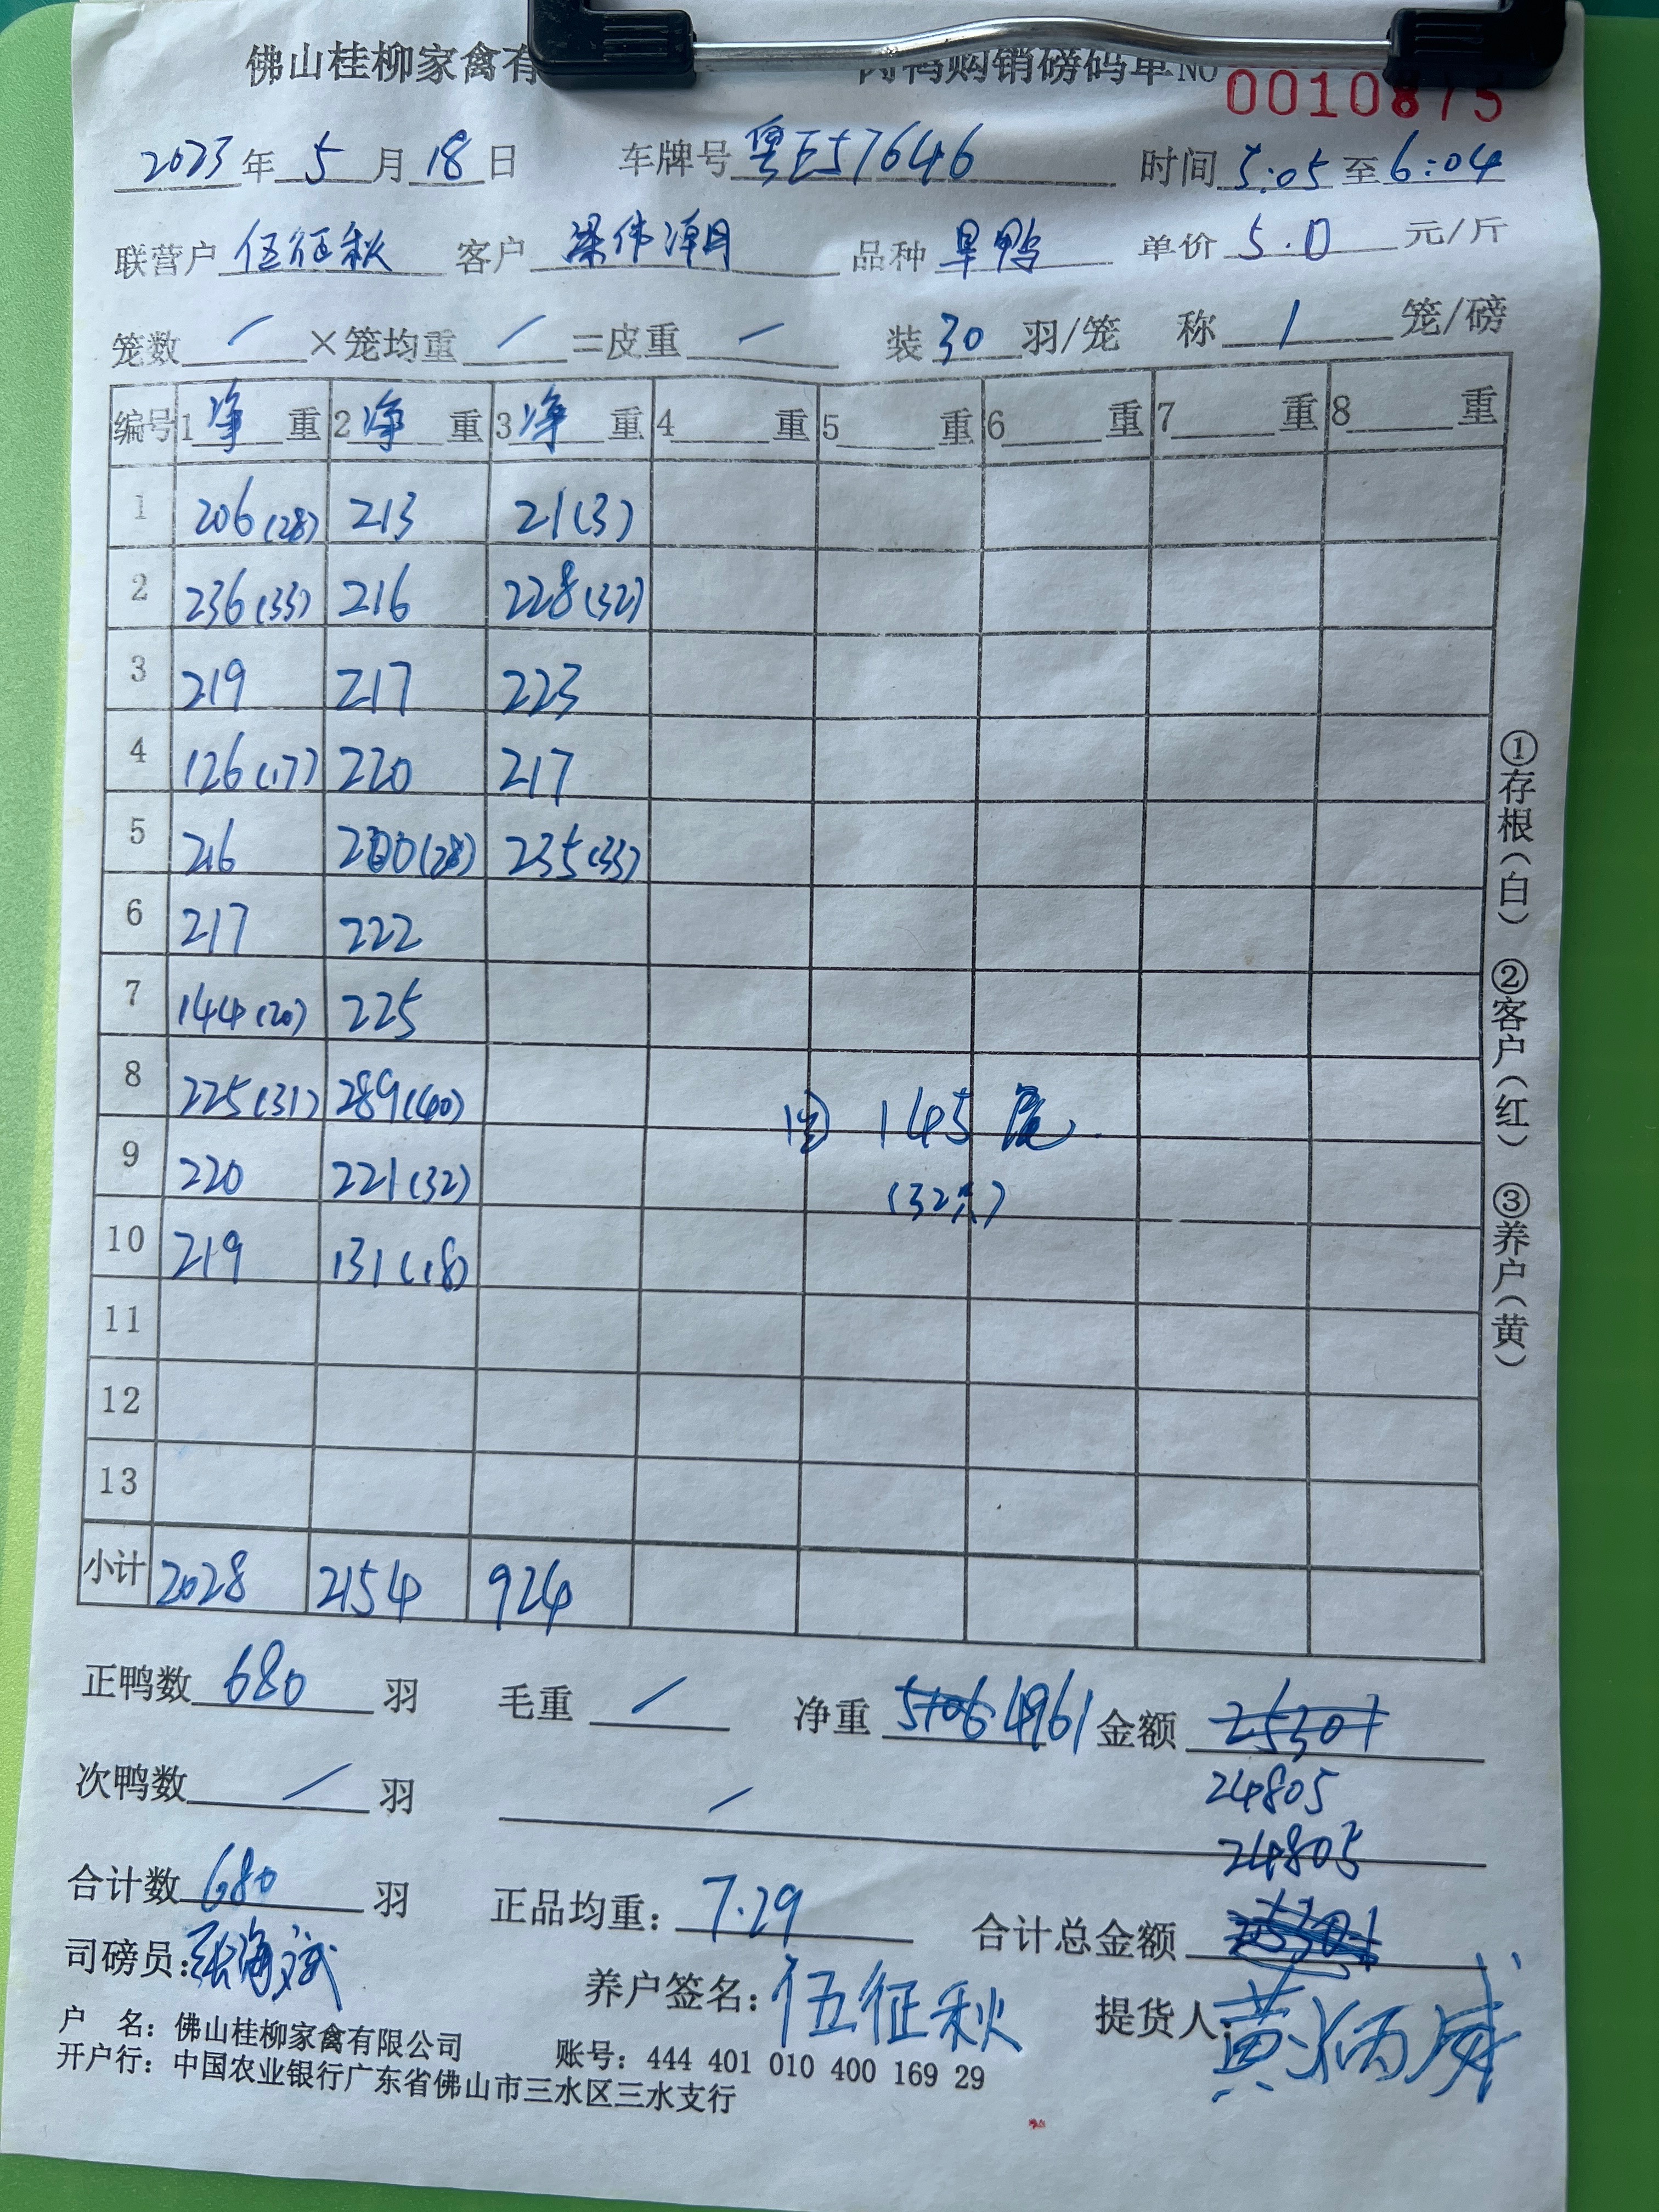 佛山桂柳家禽有 肉鸭购销磅码单NO 0010875
2023年5月18日 车牌号 粤E57646 时间 5:05 至 6:04
联营户 伍征秋 客户 梁伟潮 品种 旱鸭 单价 5.0 元/斤
笼数 / ×笼均重 / =皮重 / 装 30 羽/笼 称 1 笼/磅
编号 1 净 重 2 净 重 3 净 重 4 重 5 重 6 重 7 重 8 重
1 206(28) 213 21(3)
2 236(33) 216 228(32)
3 219 217 223
4 126(17) 220 217
5 216 200(28) 235(33)
6 217 222
7 144(20) 225
8 225(31) 289(40) 145
9 220 221(32) (32只)
10 219 131(18)
11
12
13
小计 2028 2154 924
正鸭数 680 羽 毛重 / 净重 5106 4961 金额 25301
24805
次鸭数 / 羽 /
24805
合计数 680 羽 正品均重: 7.29 合计总金额 25301
司磅员: 张海斌 养户签名: 伍征秋 提货人: 黄炳威
户 名: 佛山桂柳家禽有限公司 账号: 444 401 010 400 169 29
开户行: 中国农业银行广东省佛山市三水区三水支行
①存根(白) ②客户(红) ③养户(黄)